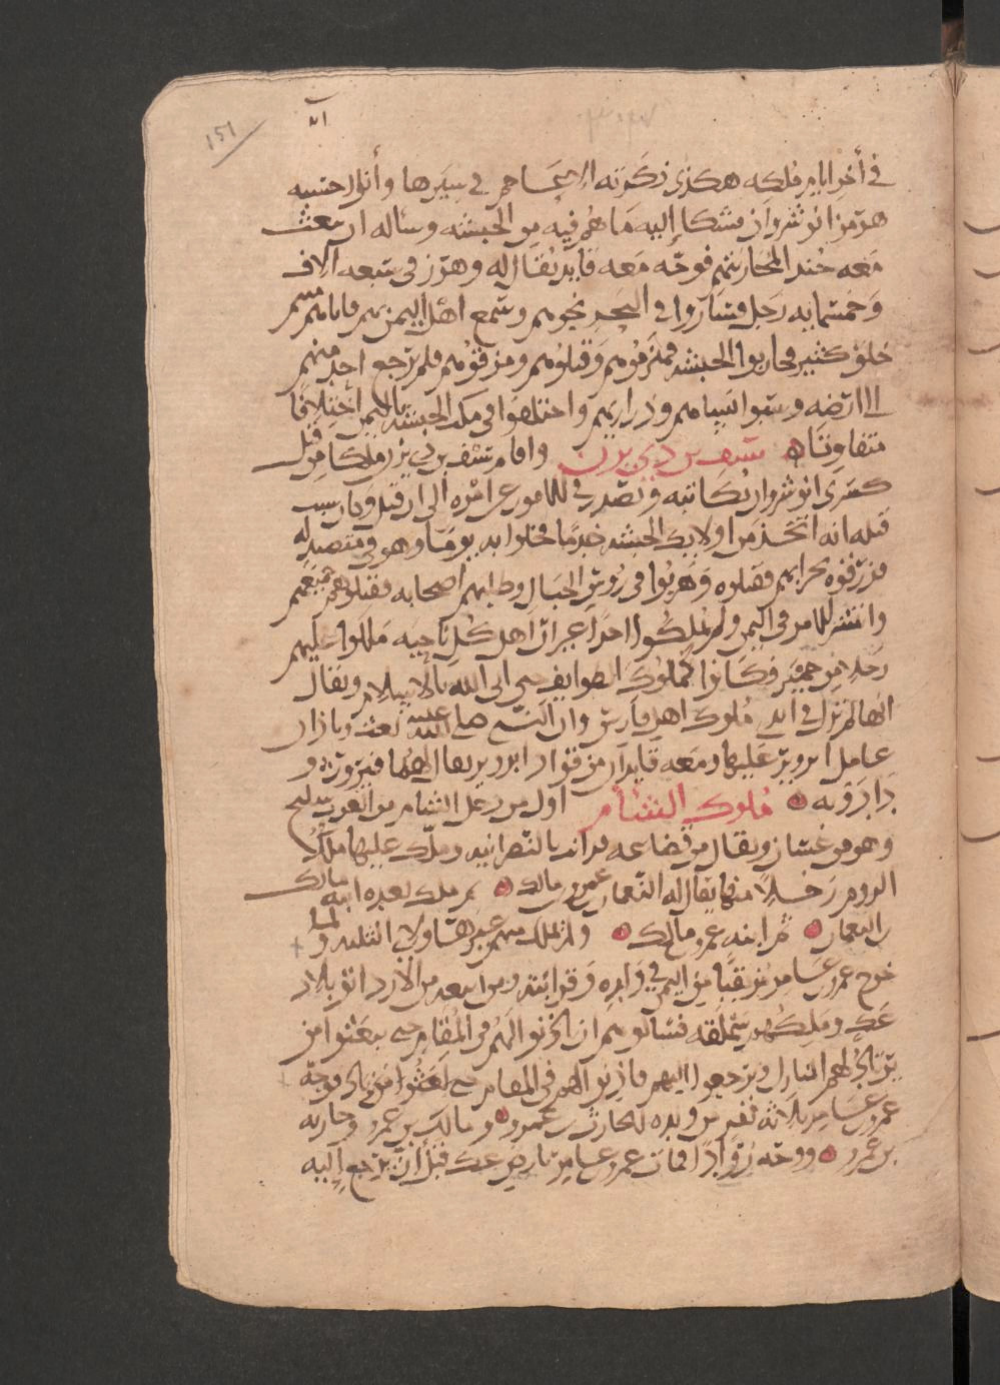 151
في أخر ايام ملكه هكذى ذكرته الاعاجم في سيرها وأنوا
هرمز انوشروان فشكا إليه ما هم فيه من الحبشه وسأله ان يبعث
معه جندا لمحاربتهم فوجه معه قايد يقال له وهرز في سبعه الاف
وخمسمايه رجل فساروا في البحر نحوهم وسمع اهل اليمن بهم فاتاهم منهم
خلق كثير فحاربوا الحبشه فهزموهم وقتلوهم ومزقوهم فلم يرجع احد منهم
الى ارضه وسبوا نساهم وذراريهم واختلفوا في ملك الحبشه باليمن اختلافا
متفاوتا ه سيف بن ذي يزن واقام سيف بن ذي يزن ملكا من قبل
كسرى انوشروان يكاتبه ويصدر في الامور عن امره الى ان قتل وكان سبب
قتله انه اتخذ من اوليك الحبشه خدما فخلوا به يوما وهو في متصيد له
فزرقوه بحرابهم فقتلوه وهربوا في روس الجبال وطلبهم اصحابه فقتلوهم جميعهم
وانتشر الامر في اليمن ولم يملكوا احدا غير ان اهل كل ناحيه ملكوا عليهم
رجلا من حمير فكانوا كملوك الطوايف حتى اتى الله بالاسلام ويقال
انها لم تزل في ايدي ملوك اهل فارس وان النبي صلى الله عليه بعث وباذان
عامل ابرويز عليها ومعه قايدان من قواد ابرويز يقال لهما فيروز و
داذويه ه ملوك الشام اول من دخل الشام من العرب سليح
وهو من غسان ويقال من قضاعه فدانت بالنصرانيه وملك عليها ملك
الروم رجلا منها يقال له النعمان بن عمرو بن مالك ه ثم ملك بعده ابنه مالك
بن النعمان ه ثم ابنه عمرو بن مالك ه ولم يملك منهم غير هاولاي الثلثه ولما
خرج عمرو بن عامر مزيقيا من اليمن في ولده وقرابته ومن تبعه من الازد اتو بلاد
عك وملكهم سملقه فسالوهم ان ياذنوا لهم في المقام حتى يبعثوا من
يرتاد لهم المنازل ويرجعوا اليهم فاذنوا لهم في المقام فبعثوا من فوجه
عمرو بن عامر ثلاثه نفر من ولده الحارث بن عمرو ه ومالك بن عمرو وحارثه
بن عمرو ه ووجه روادا فمات عمرو بن عامر بارض عك قبل أن يرجع إليه